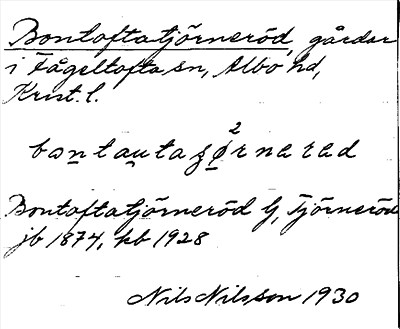 Bontoftatjörneröd, gårdar
i Fågeltofta sn, Albo hd,
Krist. l.
2
bontautaʒørnarad
Bontoftatjörneröd G, Tjörneröd
jb 1874, kb 1928
Nils Nilsson 1930